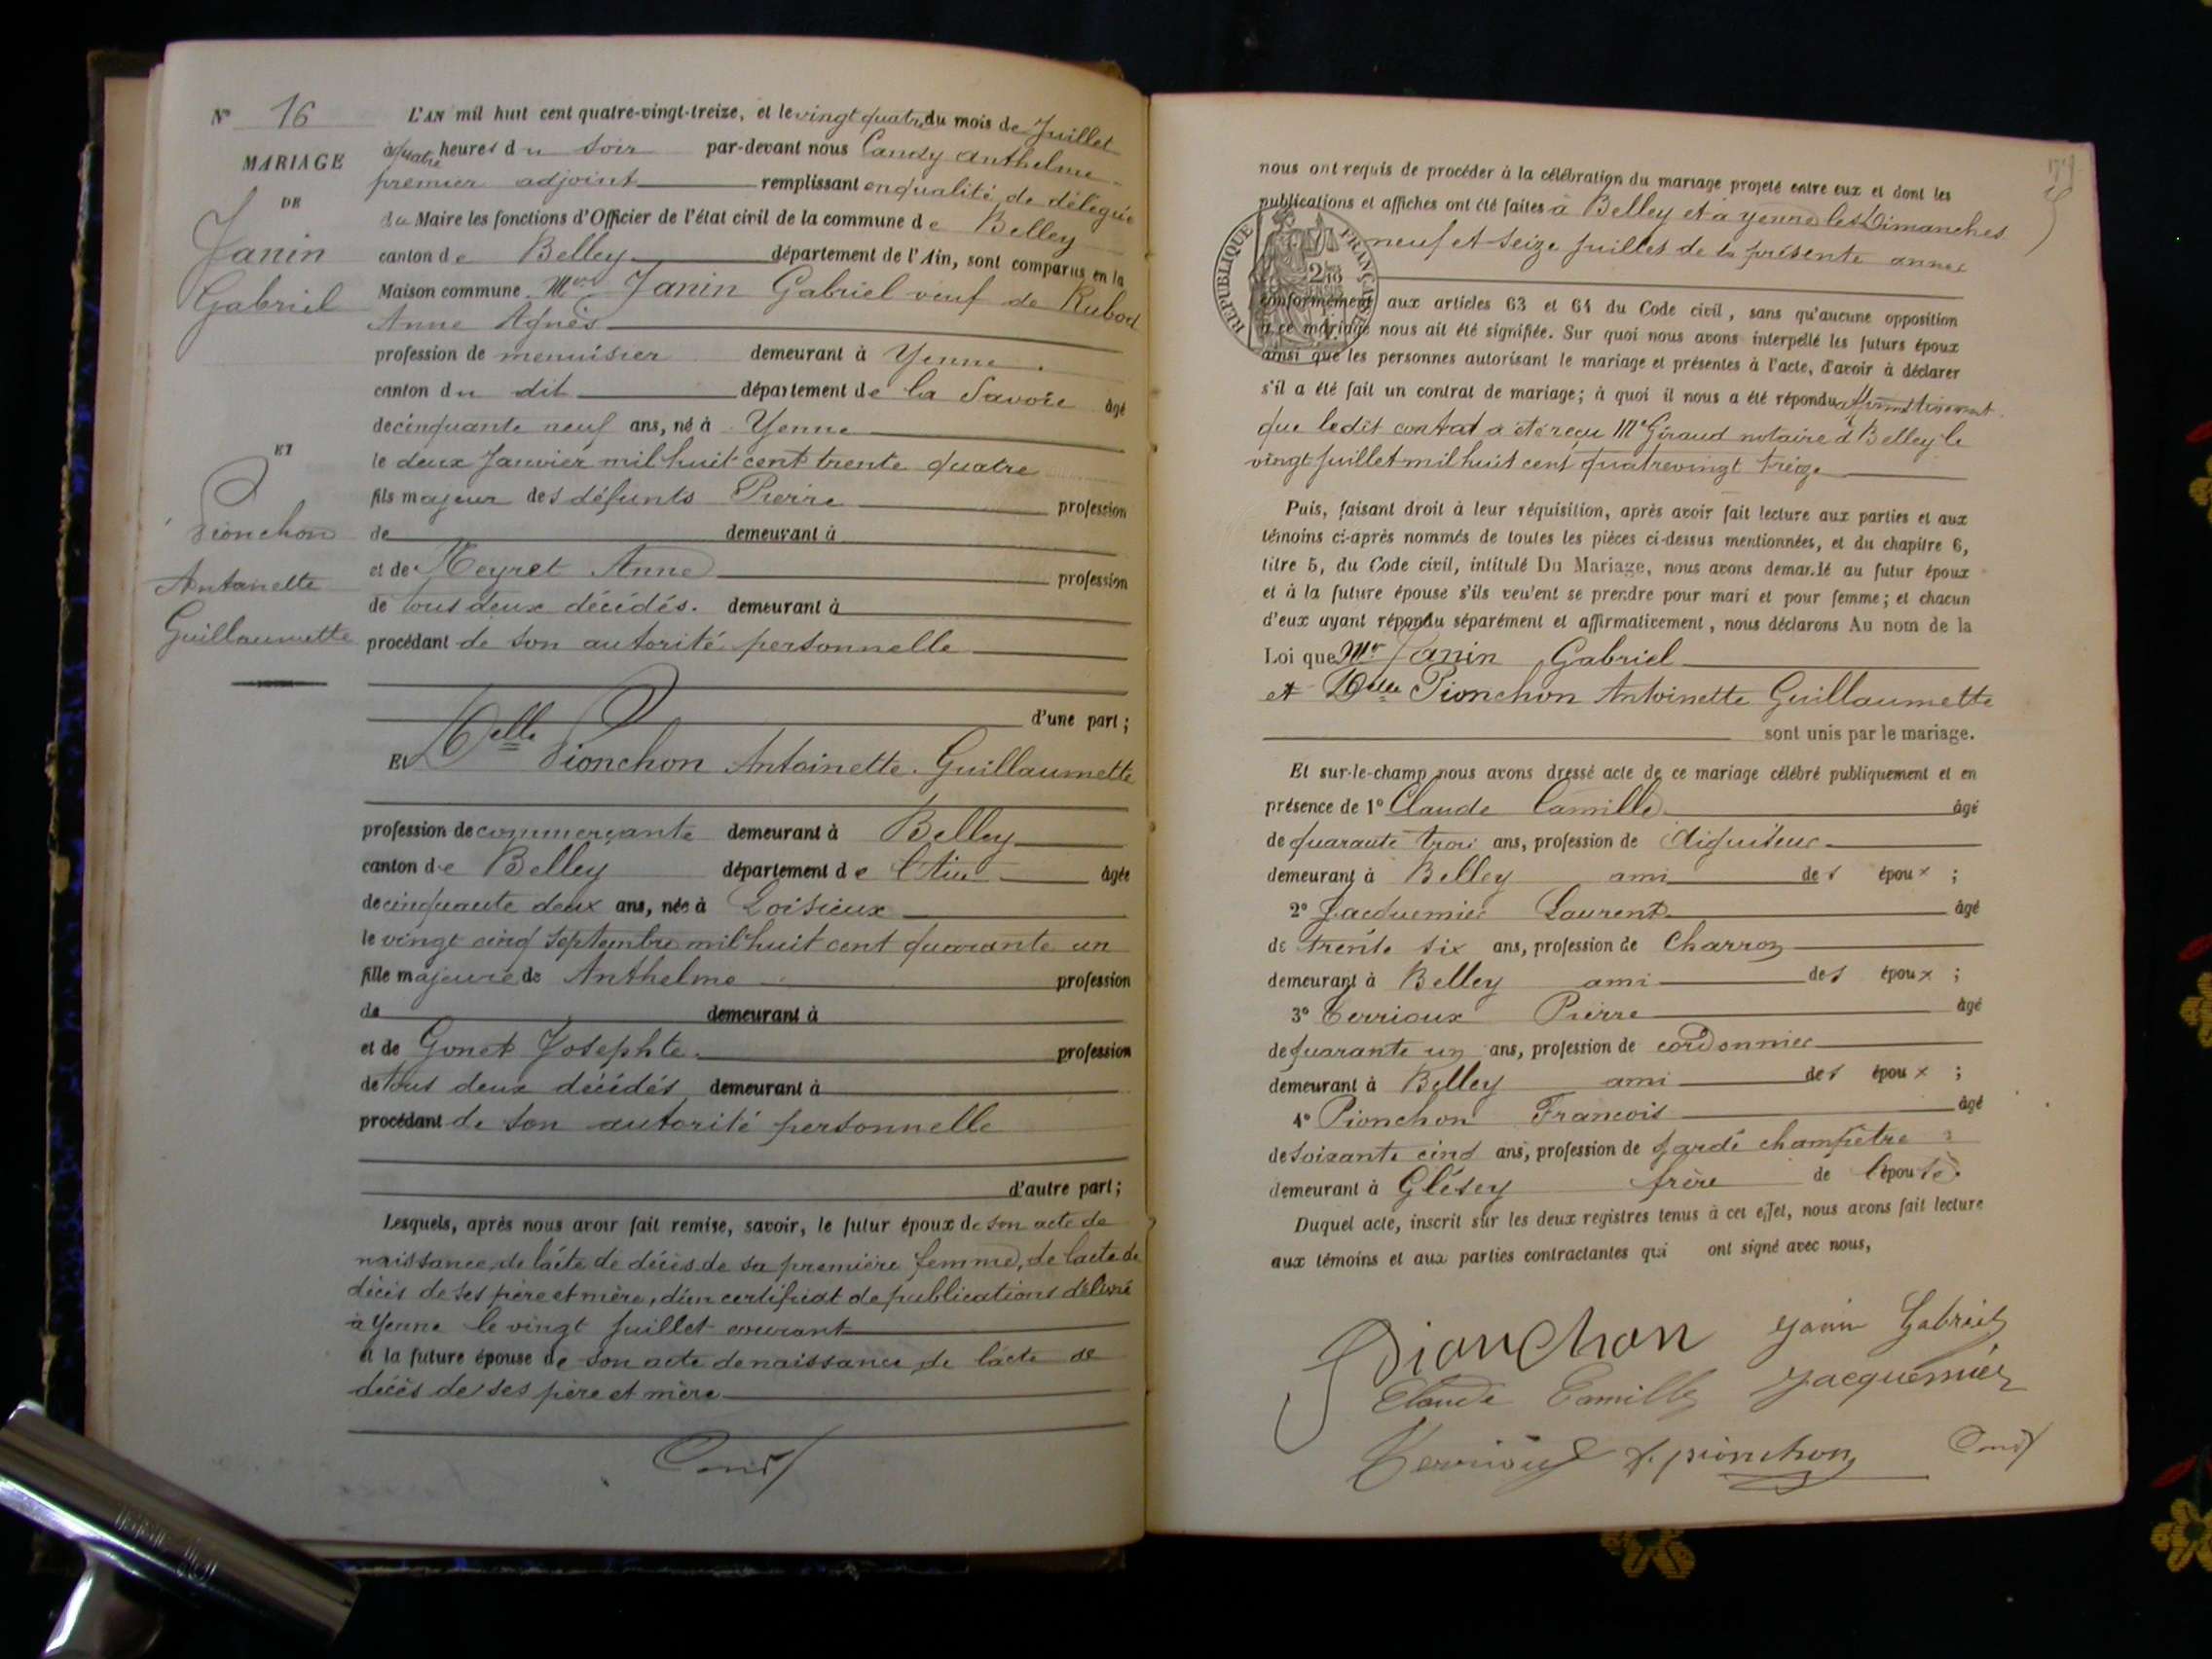 N° 16
MARIAGE
DE
Janin
Gabriel
ET
Pionchon
Antoinette
Guillaumette
L'AN mil huit cent quatre-vingt-treize, et le vingt quatre du mois de Juillet
à quatre heures du soir par-devant nous Candy Anthelme
premier adjoint remplissant en qualité de délégué
du Maire les fonctions d'Officier de l'état civil de la commune de Belley
canton de Belley département de l'Ain, sont comparus en la
Maison commune Mr Janin Gabriel veuf de Rubod
Anne Agnès
profession de menuisier demeurant à Yenne
canton du dit département de la Savoie âgé
de cinquante neuf ans, né à Yenne
le deux Janvier mil huit cent trente quatre
fils majeur des défunts Pierre profession
de demeurant à
et de Meyret Anne profession
de tous deux décédés. demeurant à
procédant de son autorité personnelle
d'une part ;
Et Delle Pionchon Antoinette Guillaumette
profession de commerçante demeurant à Belley
canton de Belley département de l'Ain âgée
de cinquante deux ans, née à Loisieux
le vingt cinq Septembre mil huit cent quarante un
fille majeure de Anthelme profession
de demeurant à
et de Gonet Josephte profession
de tous deux décédés demeurant à
procédant de son autorité personnelle
d'autre part ;
Lesquels, après nous avoir fait remise, savoir, le futur époux de son acte de
naissance, de l'acte de décès de sa première femme, de l'acte de
décès de ses père et mère, d'un certificat de publications délivré
à Yenne le vingt Juillet courant
et la future épouse de son acte de naissance, de l'acte de
décès de ses père et mère
nous ont requis de procéder à la célébration du mariage projeté entre eux et dont les
publications et affiches ont été faites à Belley et à Yenne les Dimanches
neuf et seize Juillet de la présente année
RÉPUBLIQUE FRANÇAISE
conformément aux articles 63 et 64 du Code civil, sans qu'aucune opposition
à ce mariage nous ait été signifiée. Sur quoi nous avons interpellé les futurs époux
ainsi que les personnes autorisant le mariage et présentes à l'acte, d'avoir à déclarer
s'il a été fait un contrat de mariage ; à quoi il nous a été répondu affirmativement
que ledit contrat a été reçu Me Giraud notaire à Belley le
vingt Juillet mil huit cent quatre vingt treize
Puis, faisant droit à leur réquisition, après avoir fait lecture aux parties et aux
témoins ci-après nommés de toutes les pièces ci-dessus mentionnées, et du chapitre 6,
titre 5, du Code civil, intitulé Du Mariage, nous avons demandé au futur époux
et à la future épouse s'ils veulent se prendre pour mari et pour femme ; et chacun
d'eux ayant répondu séparément et affirmativement, nous déclarons Au nom de la
Loi que Mr Janin Gabriel
et Delle Pionchon Antoinette Guillaumette
sont unis par le mariage.
Et sur-le-champ nous avons dressé acte de ce mariage célébré publiquement et en
présence de 1° Claude Camille âgé
de quarante trois ans, profession de
demeurant à Belley ami des époux ;
2° Jacquemier Laurent âgé
de trente six ans, profession de Charron
demeurant à Belley ami des époux ;
3° Terrioux Pierre âgé
de quarante un ans, profession de cordonnier
demeurant à Belley ami des époux ;
4° Pionchon Francois âgé
de soixante cinq ans, profession de garde champêtre
demeurant à frère de l'épouse.
Duquel acte, inscrit sur les deux registres tenus à cet effet, nous avons fait lecture
aux témoins et aux parties contractantes qui ont signé avec nous,
Pionchon Janin Gabriel
Claude Camille Jacquemier
Terrioux f. pionchon